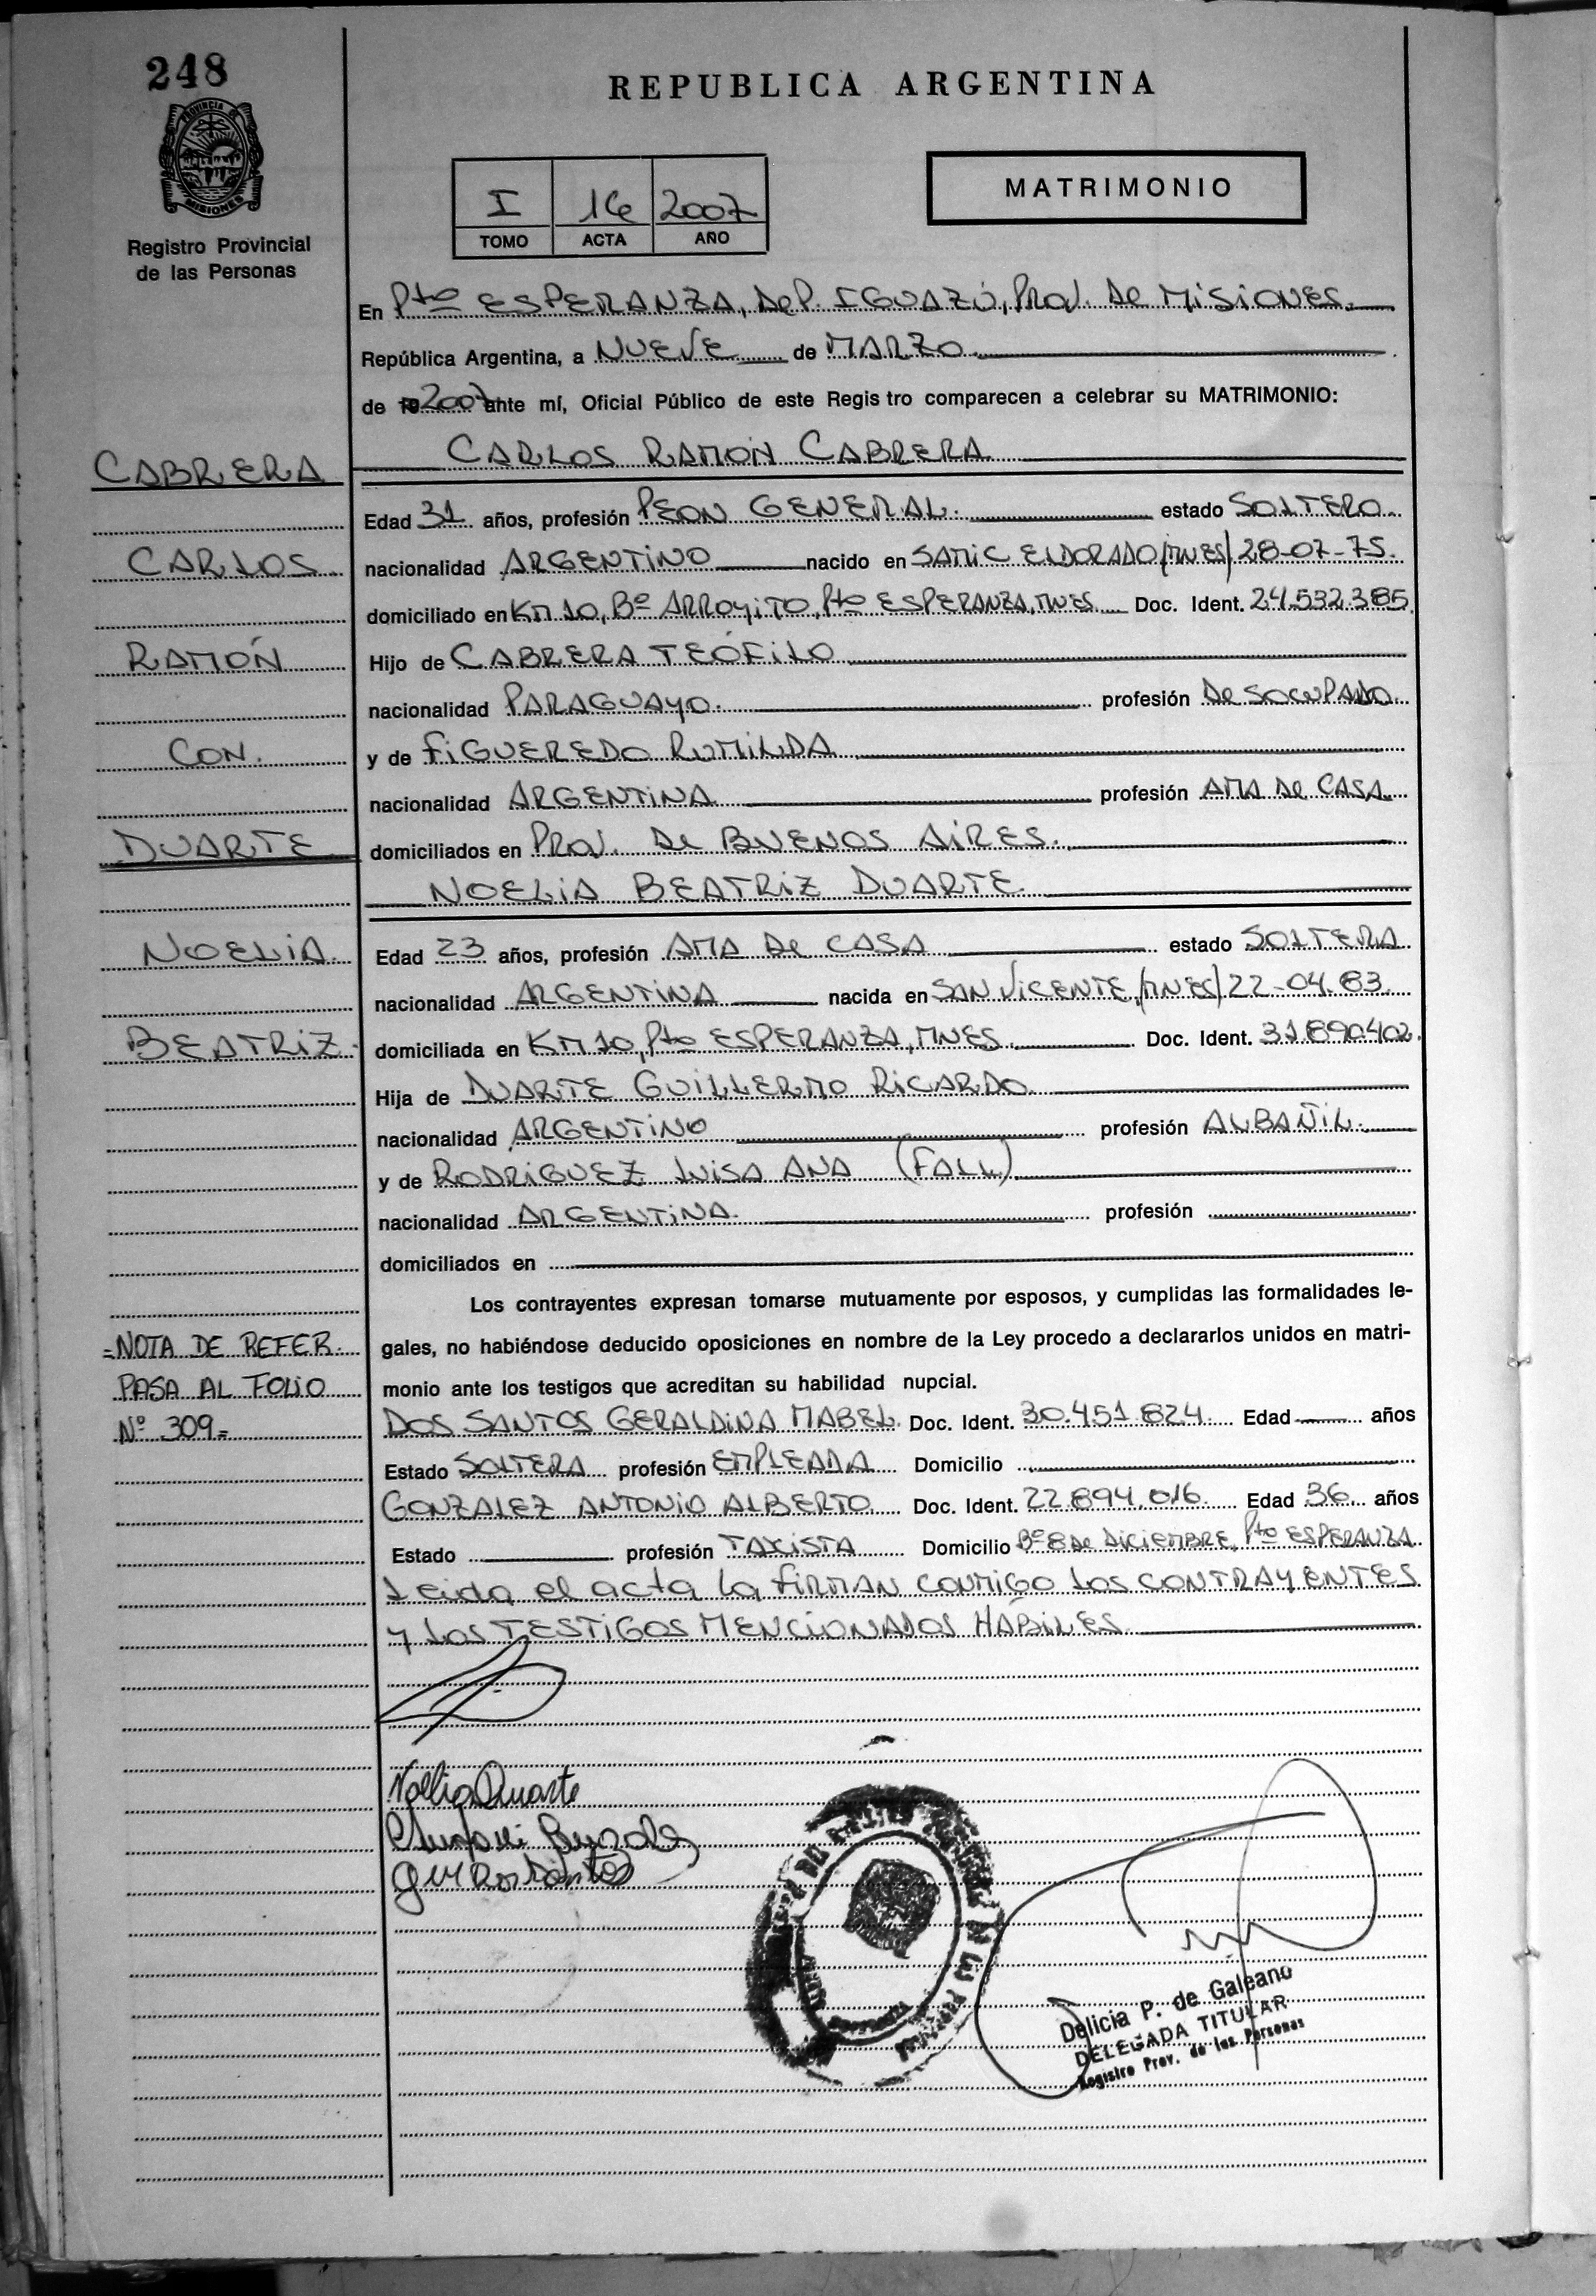 248
REPUBLICA ARGENTINA
PROVINCIA
MISIONES
Registro Provincial
de las Personas
I 16 2007
TOMO ACTA AÑO
MATRIMONIO
En Pto ESPERANZA, DeP. IGUAZÚ, PROV. De MISIONES.
República Argentina, a NUEVE de MARZO
de 19 2007 ante mí, Oficial Público de este Regis tro comparecen a celebrar su MATRIMONIO:
CARLOS RAMÓN CABRERA
CABRERA
CARLOS
RAMÓN
CON.
DUARTE
NOELIA
BEATRIZ.
Edad 31 años, profesión PEON GENERAL. estado SOLTERO.
nacionalidad ARGENTINO nacido en SAMIC ELDORADO/MNES/28-07-75.
domiciliado en KM 10, Bº ARROYITO, Pto ESPERANZA, MNES Doc. Ident. 24.532.385
Hijo de CABRERA TEÓFILO
nacionalidad PARAGUAYO. profesión DeSOCUPADO.
y de FIGUEREDO ROMILDA
nacionalidad ARGENTINA profesión AMA De CASA
domiciliados en PROV. De BUENOS AIRES.
NOELIA BEATRIZ DUARTE
Edad 23 años, profesión AMA De CASA estado SOLTERA
nacionalidad ARGENTINA nacida en SAN VICENTE,/MNES/22-04.83.
domiciliada en KM 10, Pto ESPERANZA, MNES. Doc. Ident. 31.890.402.
Hija de DUARTE GUILLERMO RICARDO
nacionalidad ARGENTINO profesión ALBAÑIL.
y de RODRIGUEZ LUISA ANA (FALL)
nacionalidad ARGENTINA. profesión
domiciliados en
Los contrayentes expresan tomarse mutuamente por esposos, y cumplidas las formalidades le-
gales, no habiéndose deducido oposiciones en nombre de la Ley procedo a declararlos unidos en matri-
monio ante los testigos que acreditan su habilidad nupcial.
=NOTA DE REFER.
PASA AL FOLIO
Nº 309=
DOS SANTOS GERALDINA MABEL. Doc. Ident. 30.451.824. Edad años
Estado SOLTERA profesión EMPLEADA Domicilio
GONZALEZ ANTONIO ALBERTO Doc. Ident. 22.894.016. Edad 36 años
Estado profesión TAXISTA Domicilio Bº 8 De DICIEMBRE, Pto ESPERANZA
Leida el acta la FIRMAN CONMIGO LOS CONTRAYENTES
Y LOS TESTIGOS MENCIONADOS HÁBILES.
Noelia Duarte
Delicia P. de Galeano
DELEGADA TITULAR
Registro Prov. de las Personas